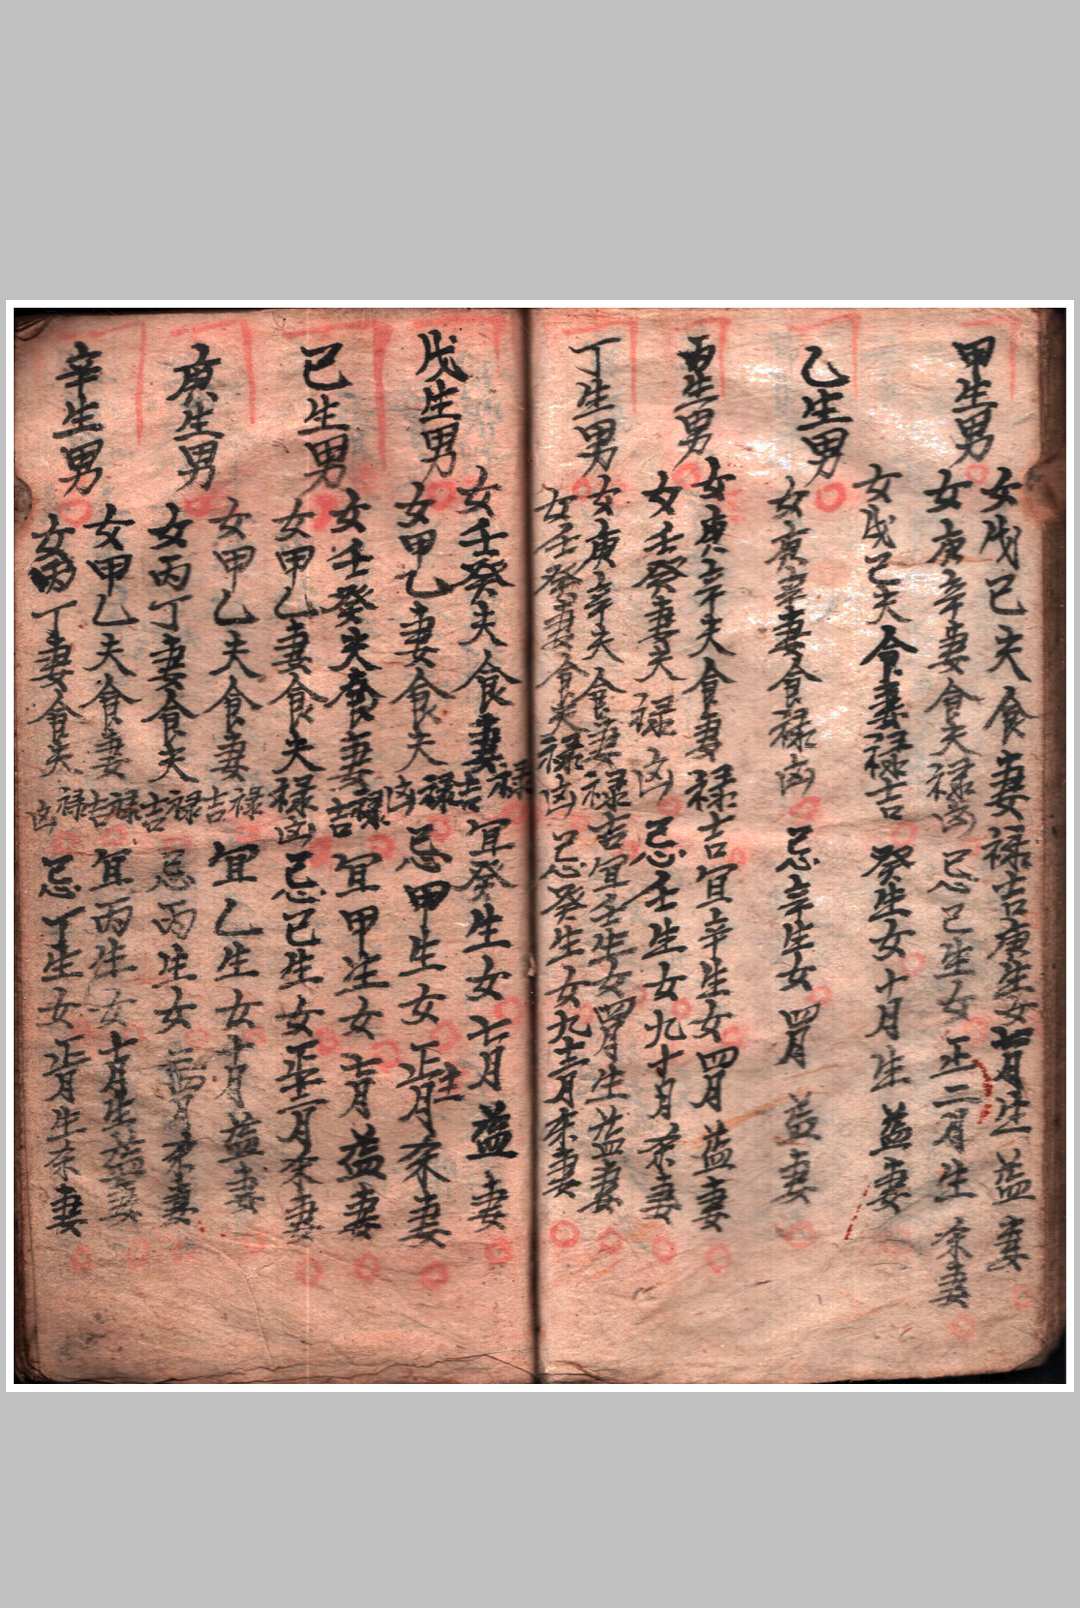 甲生男
女戊己夫食妻禄吉庚生女七月生益妻
女庚辛妻食夫禄凶忌己生女正二月生 妻
乙生男
女戊己夫食妻禄吉癸生女十月生益妻
女庚辛妻食禄凶忌辛生女四月益妻
丙生男
女庚辛夫食妻禄吉宜辛生女四月益妻
女壬癸妻夫禄凶忌壬生女九十月 妻
丁生男
女庚辛夫食妻禄吉宜壬生女四月生益妻
女壬癸妻食夫禄凶忌癸生女九十二月 妻
戊生男
女壬癸夫食妻禄吉宜癸生女七月益妻
女甲乙妻食夫禄凶忌甲生女正月 妻
己生男
女壬癸夫食妻禄吉宜甲生女七月益妻
女甲乙妻食夫禄凶忌己生女正十二月 妻
庚生男
女甲乙夫食妻禄吉宜乙生女十月益妻
女丙丁妻食夫禄吉忌丙生女 四月 妻
辛生男
女甲乙夫食妻禄吉宜丙生女七月生益妻
女丙丁妻食夫禄凶忌丁生女正月生 妻